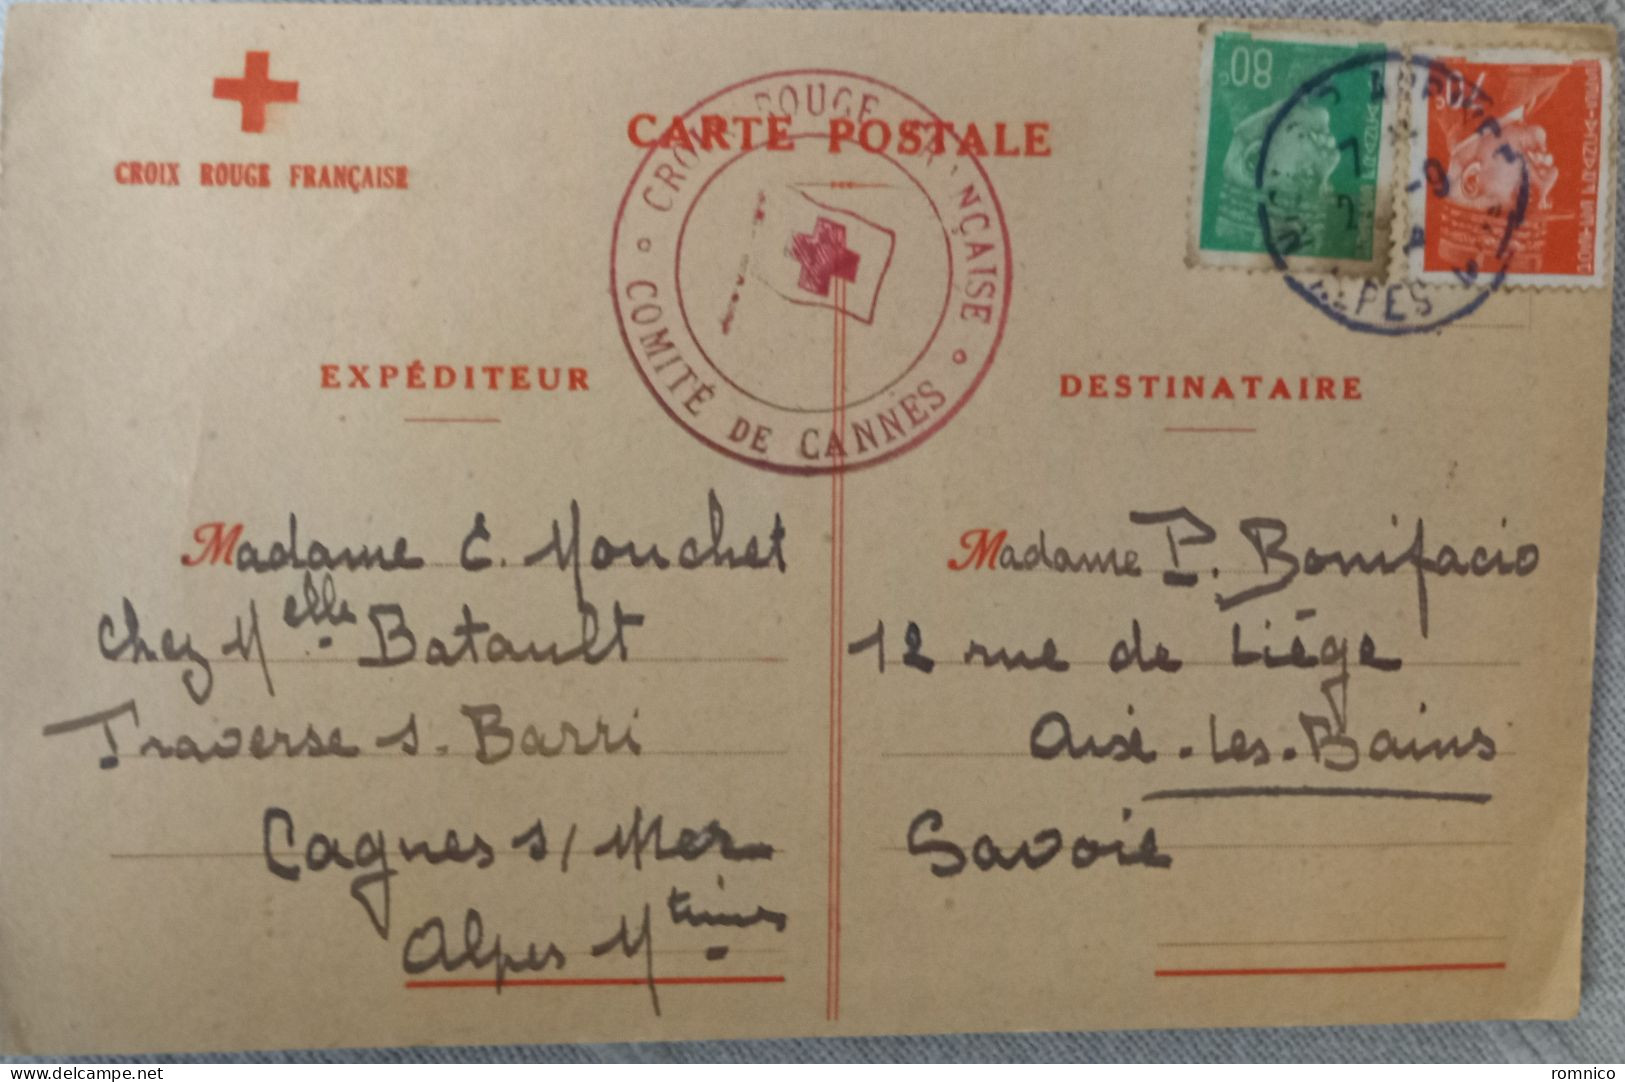 CROIX ROUGE FRANÇAISE
CARTE POSTALE
CROIX ROUGE FRANÇAISE
COMITÉ DE CANNES
80c
POSTES FRANÇAISES
ALPES
EXPÉDITEUR
Madame E. Mouchet
chez Melle Batault
Traverse s. Barri
Cagnes s/ Mer
Alpes Mtimes
DESTINATAIRE
Madame P. Bonifacio
12 rue de Liége
Aix-les-Bains
Savoie
delcampe.net
romnico